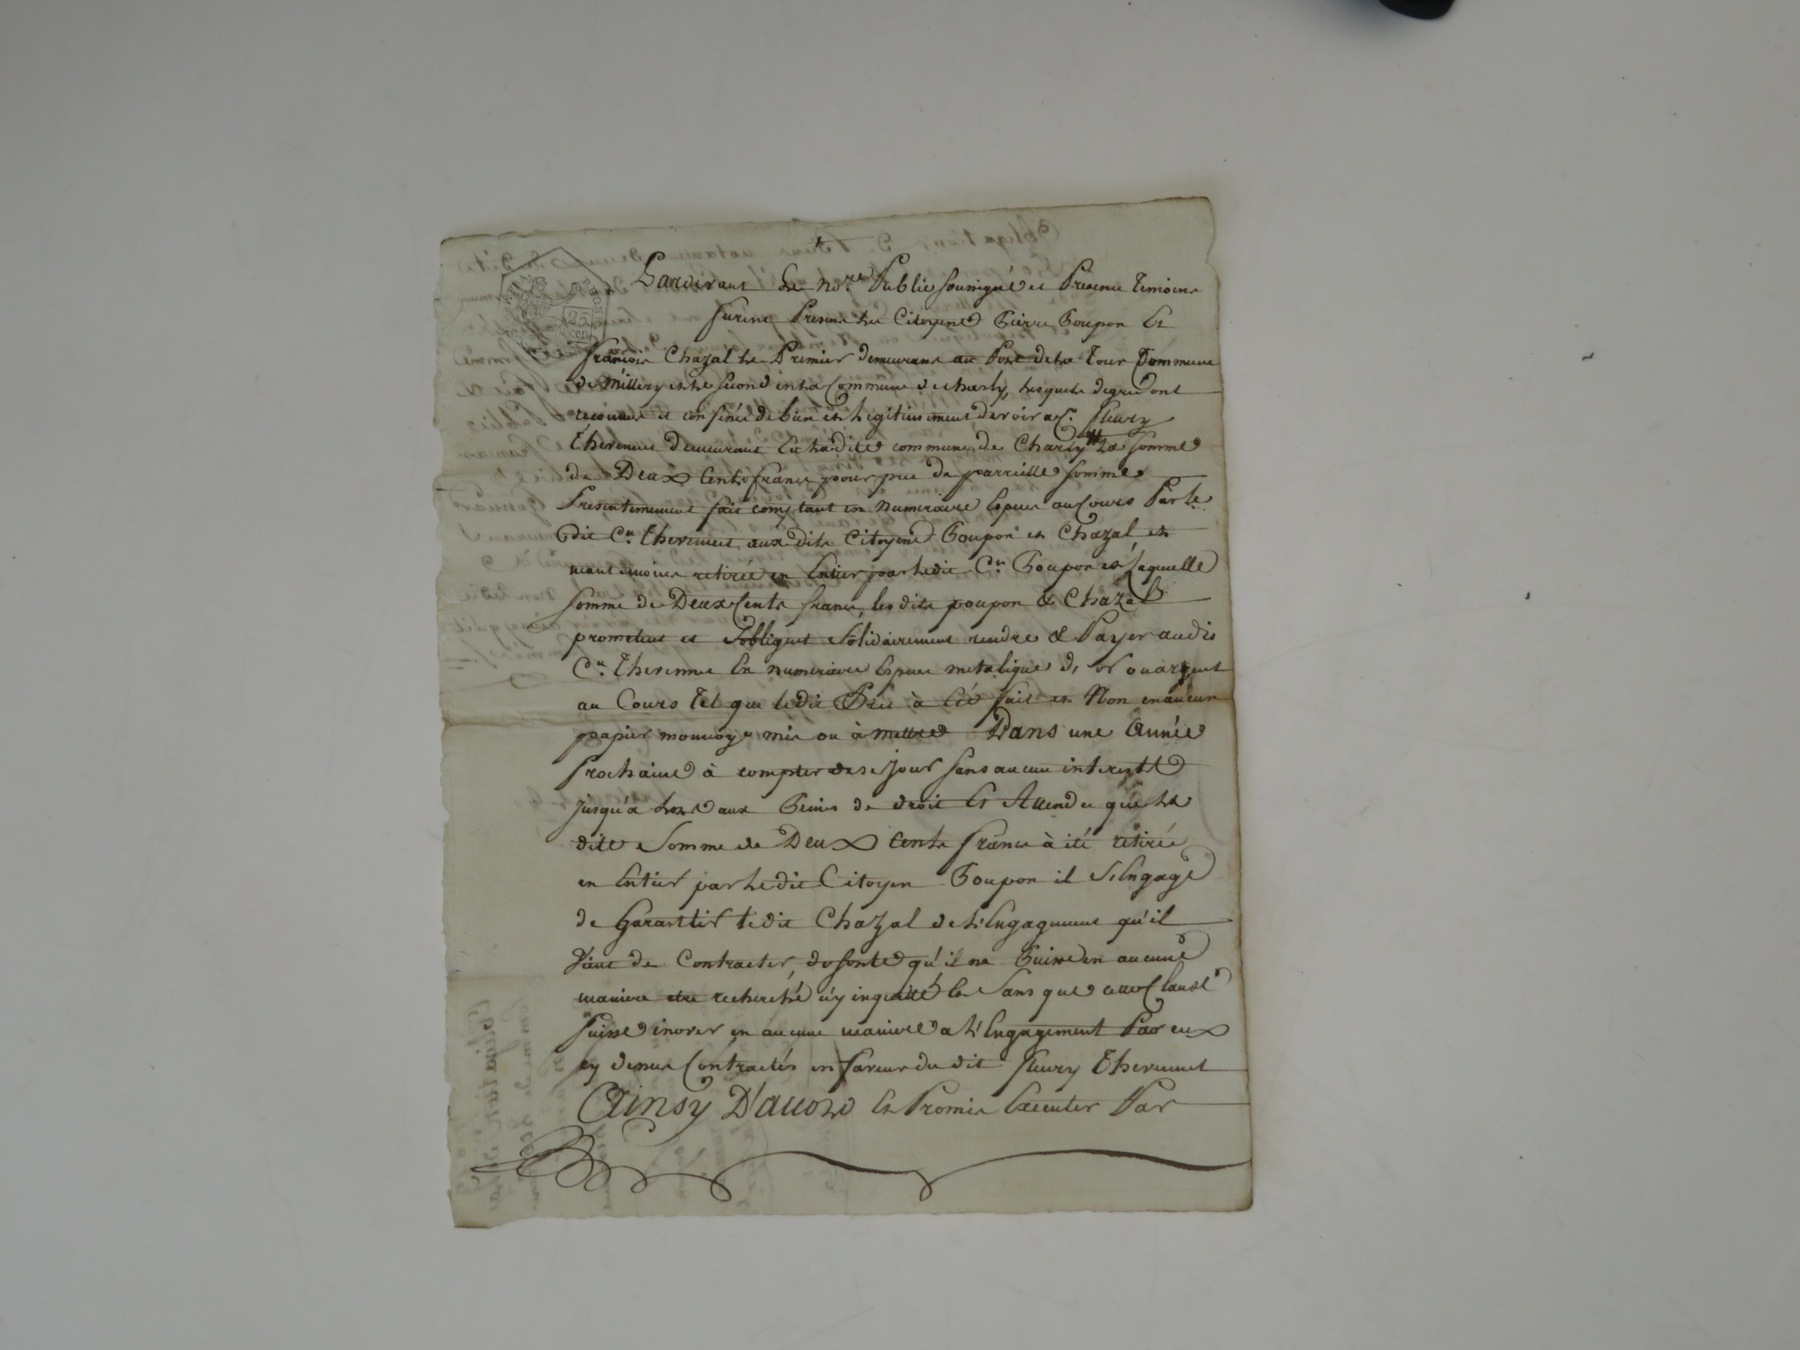 Pardevant Le no.re Public soussigné et Presence Temoins
furent Presents les Citoyens Pierre Poupon Et
françois Chazal le Premier demeurant au Port de la Tour Commune
de Millery et le second en la Commune de charly, lesquels de gré ont
reconnu et confessé de bien et legitimement devoir a C.n fleury
Thevenet demeurant En la dite commune de Charly La somme
de Deux Cents francs pour prêt de parreille somme
Presentement fait comptant en numeraire Espece au Cours Par le
dit C.n Thevenet aux dits Citoyens Poupon et Chazal et
neant moins retirée en Entier par ledit C.n Poupon et Laquelle
somme de Deux Cents francs, les dits poupon & Chazal
promettent et s'obligent solidairement rendre & Payer audit
C.n Thevennet En numeraire Espece metalique d'or ou argent
au Cours tel que ledit Prêt à Eté fait et Non en aucun
papier monnoye mis ou à mettre Dans une Année
Prochaine à compter de se jour sans aucun interest
jusqu'a Lors aux Peines de droit Et Attendu que La
dite somme de Deux Cents francs à été retirée
en Entier par Le dit Citoyen Poupon il s'Engage
de Garantir le dit Chazal de l'Engagement qu'il
vient de Contracter, de sorte qu'il ne Puisse en aucune
maniere etre recherché n'y inquietté Et Sans que cette Clause
Puisse inover en aucune maniere a l'Engagement Par eux
cy dessus Contractés en faveur du dit fleury Thevennet
Ainsy D'accord Et Promis Executer Par